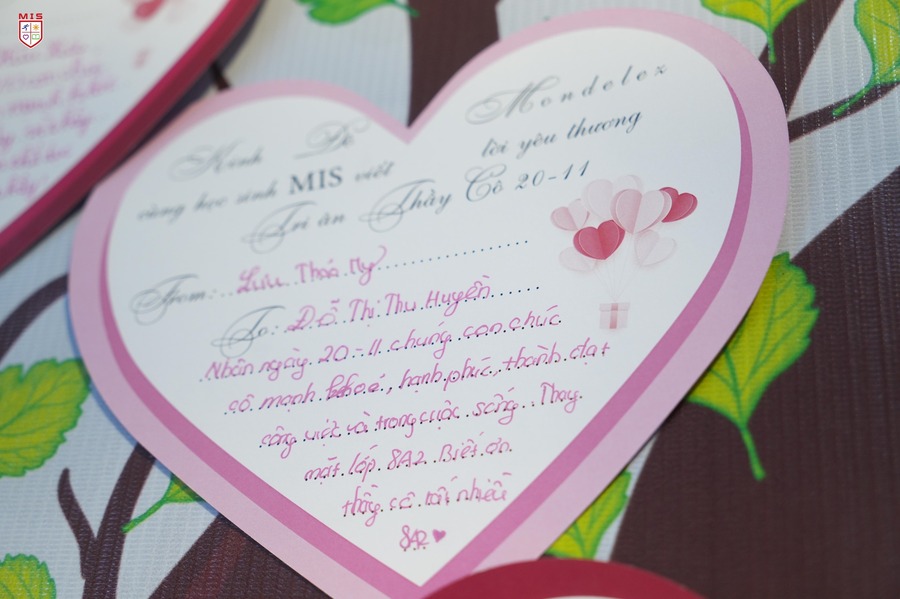 MIS
Kinh Đô Mondelez
cùng học sinh MIS viết lời yêu thương
Tri ân Thầy Cô 20-11
From: Lưu Thảo My
To: Đỗ Thị Thu Huyền
Nhân ngày 20-11 chúng con chúc
cô mạnh khoẻ, hạnh phúc, thành đạt
công việt và trong cuộc sống. Thay
mặt lớp 8A2 Biết ơn
thầy cô rất nhiều
8A2